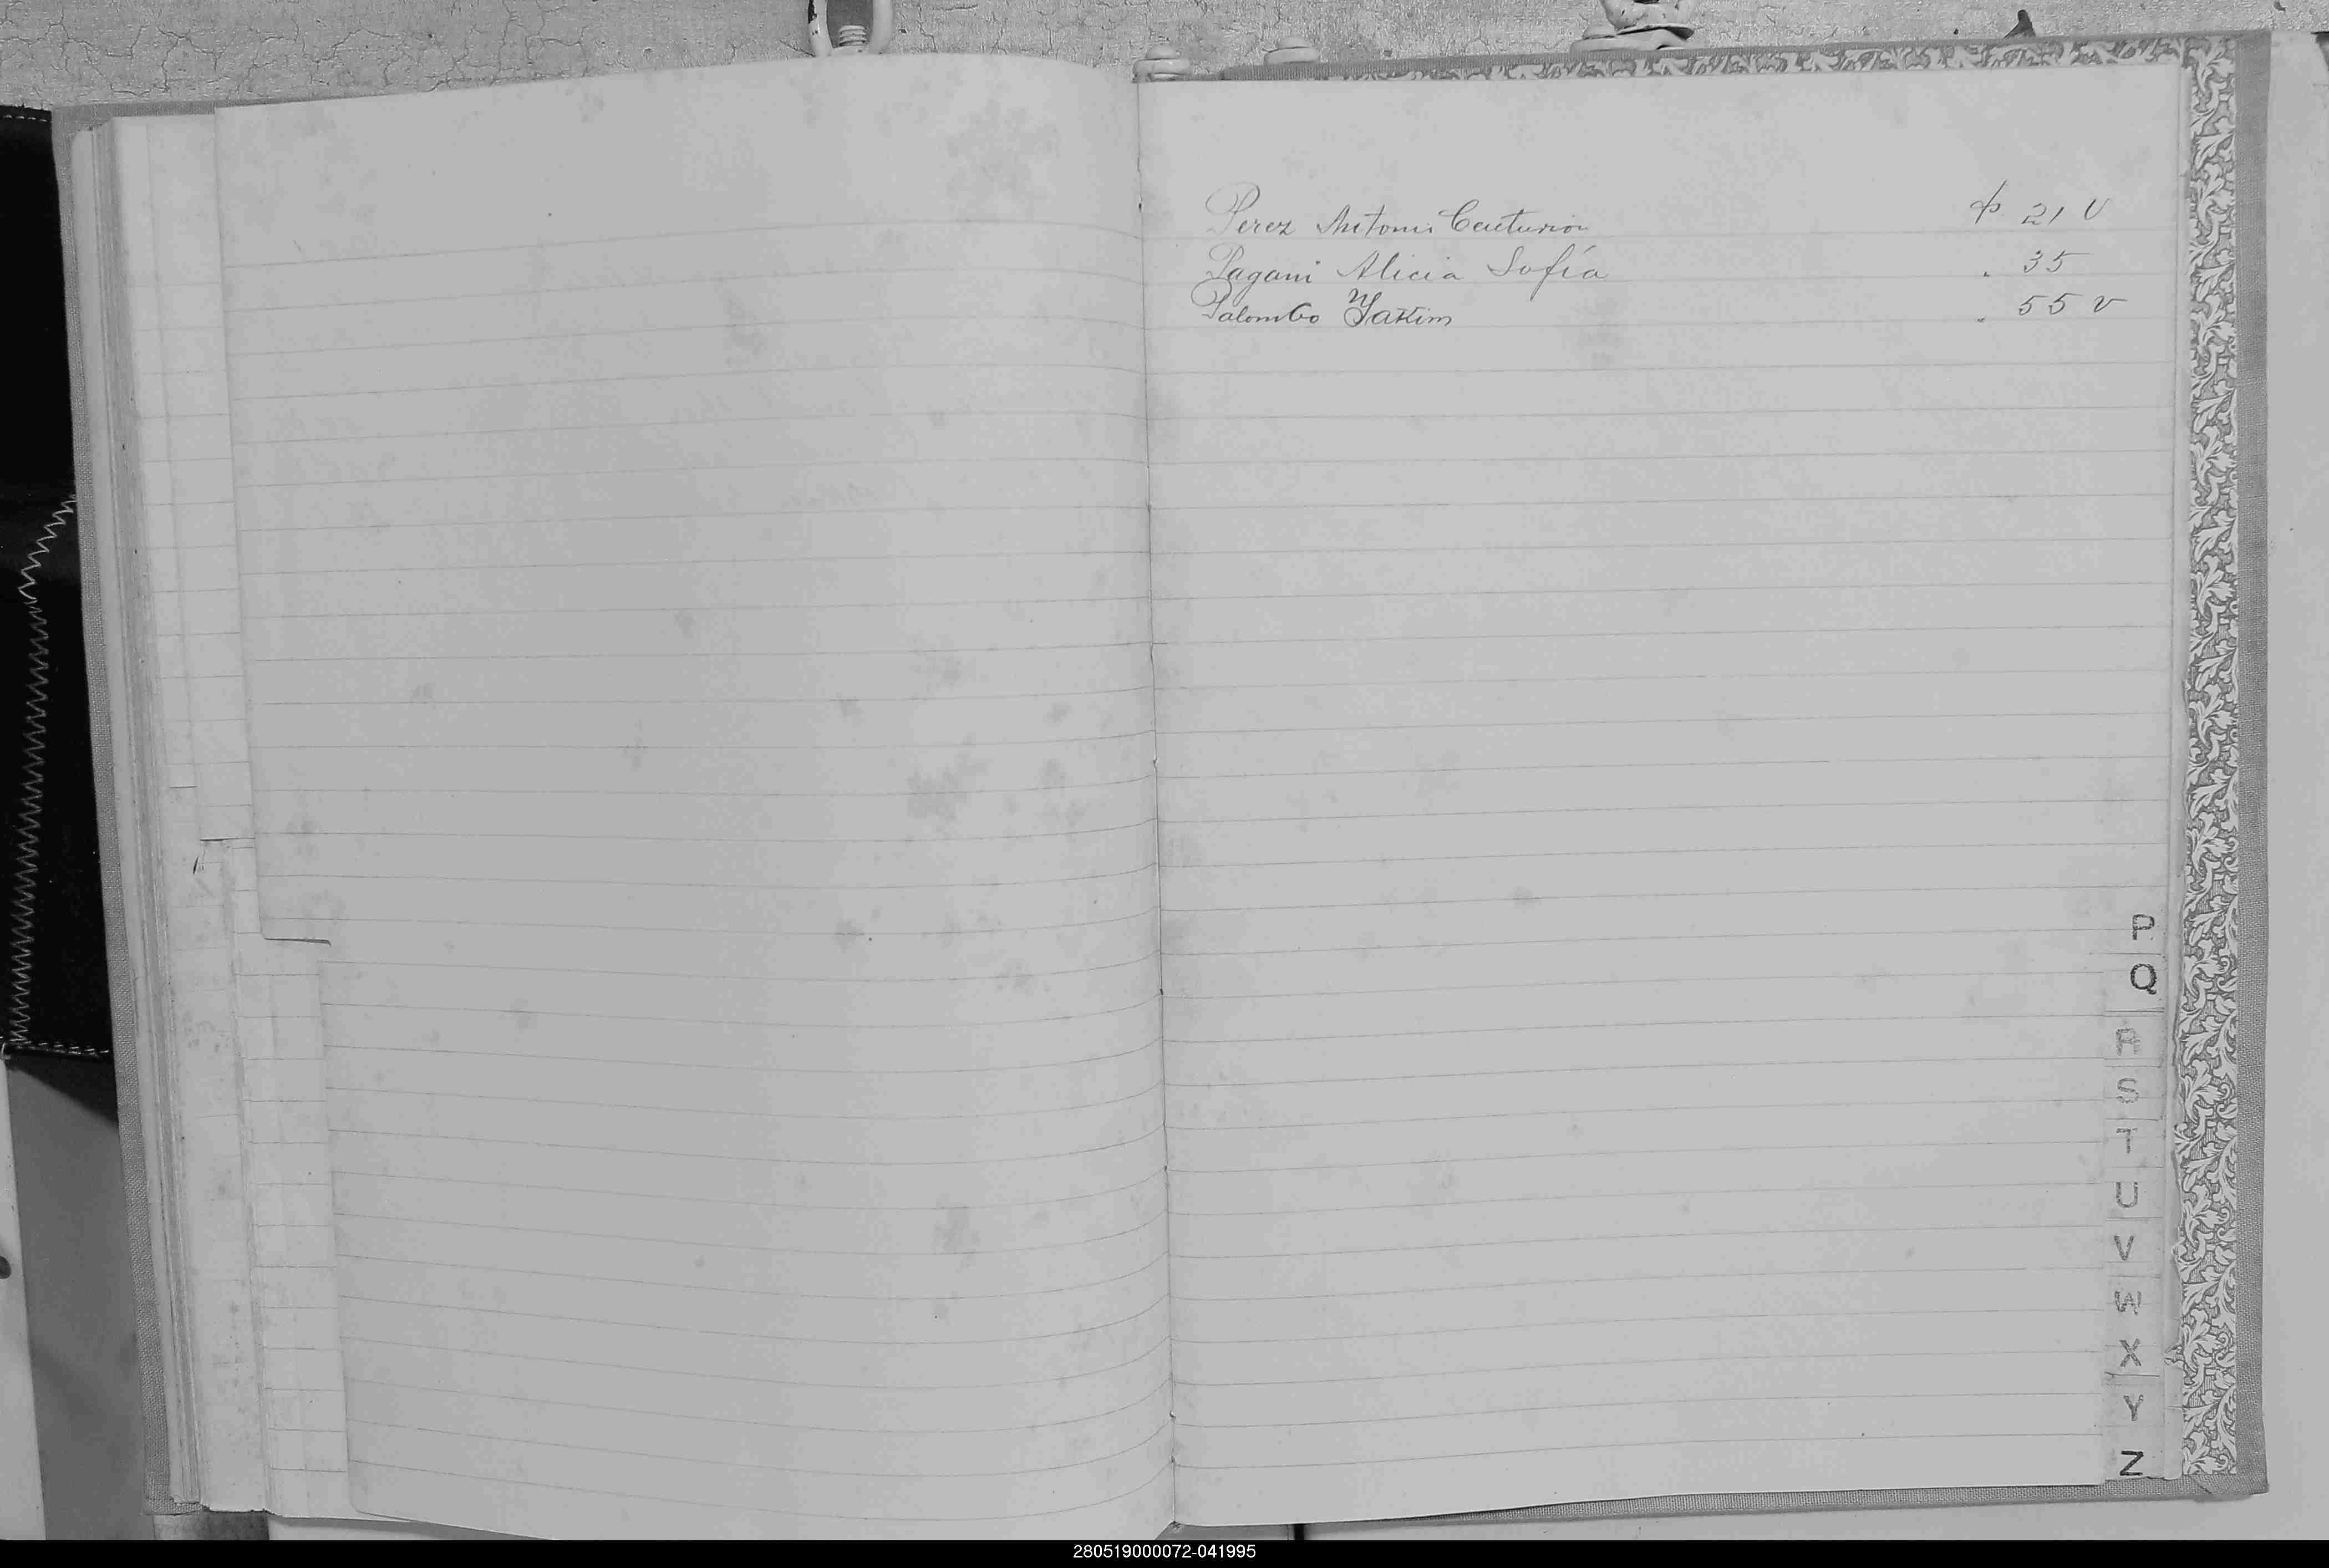 Perez Antonio Centurion fo 21 v
Pagani Alicia Sofía " 35
Palombo " 55 v
P
Q
R
S
T
U
V
W
X
Y
Z
280519000072-041995